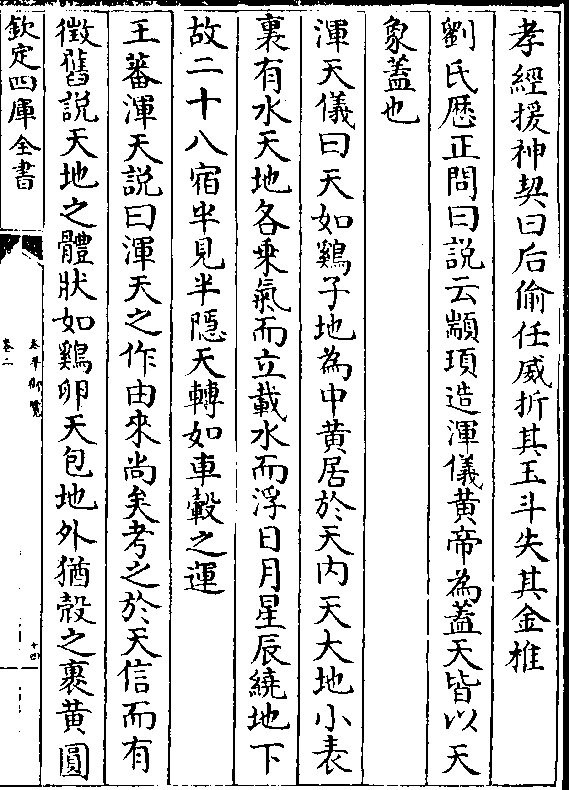 孝經援神契曰后偷任威折其玉斗失其金椎
劉氏厯正問曰説云顓頊造渾儀黄帝為葢天皆以天
象葢也
渾天儀曰天如鷄子地為中黄居於天内天大地小表
裏有水天地各乗氣而立載水而浮日月星辰繞地下
故二十八宿半見半隠天轉如車轂之運
王蕃渾天説曰渾天之作由來尚矣考之於天信而有
徴舊説天地之體狀如鷄卵天包地外猶殻之裹黄圓
欽定四庫全書
太平御覽
卷二
十四